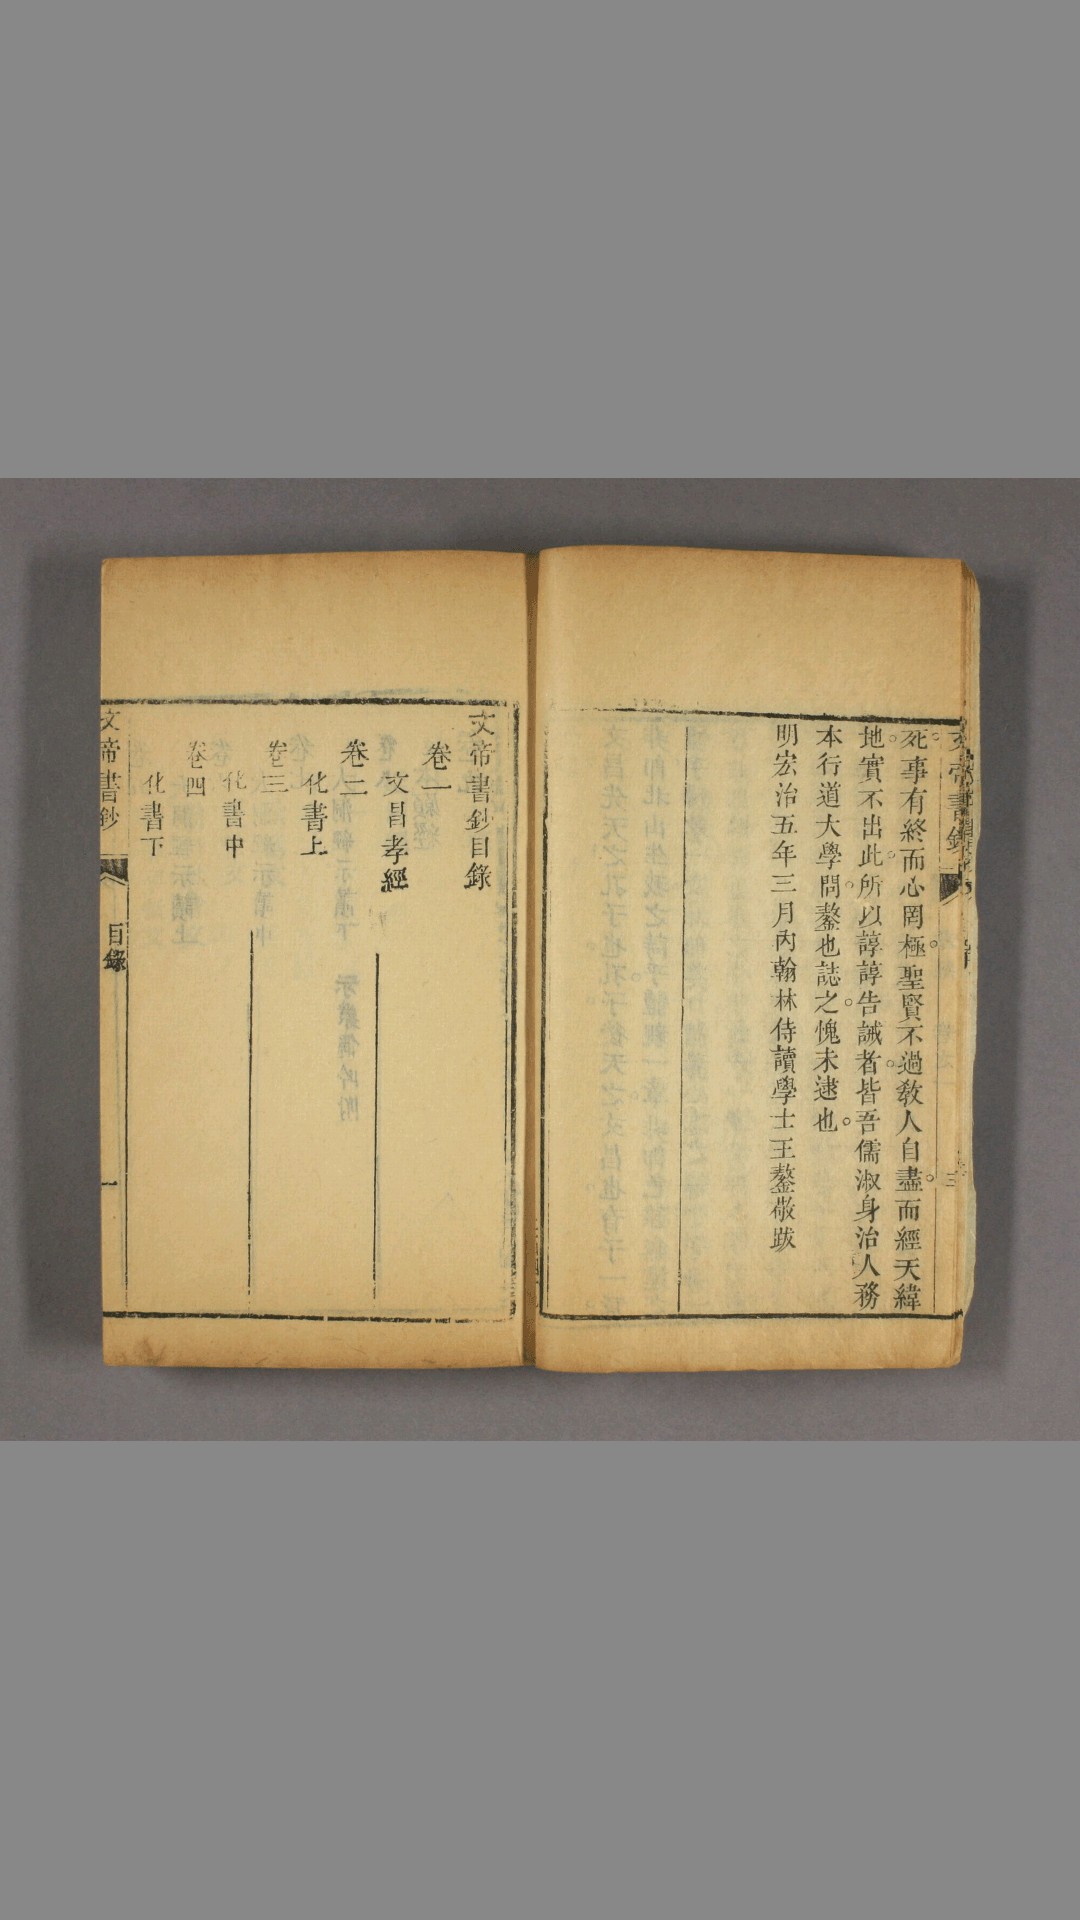 死。事有終而心罔極。聖賢不過教人自盡。而經天緯
地。實不出此。所以諄諄告誡者。皆吾儒淑身治人務
本行道大學問。鏊也誌之。愧未逮也。
明宏治五年三月內翰林侍讀學士王鏊敬跋
文帝書鈔目錄
卷一
文昌孝經
卷二
化書上
卷三
化書中
卷四
化書下
文帝書鈔
目錄
一